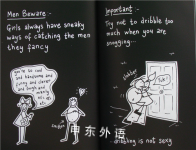 Men Beware:-
Girls always have sneaky
ways of catching the men
they fancy
you're so cool
and handsome and
funny and clever
and
Important:-
Try not to dribble too
much when you are
snogging...
中东外语
...dribbling is not sexy